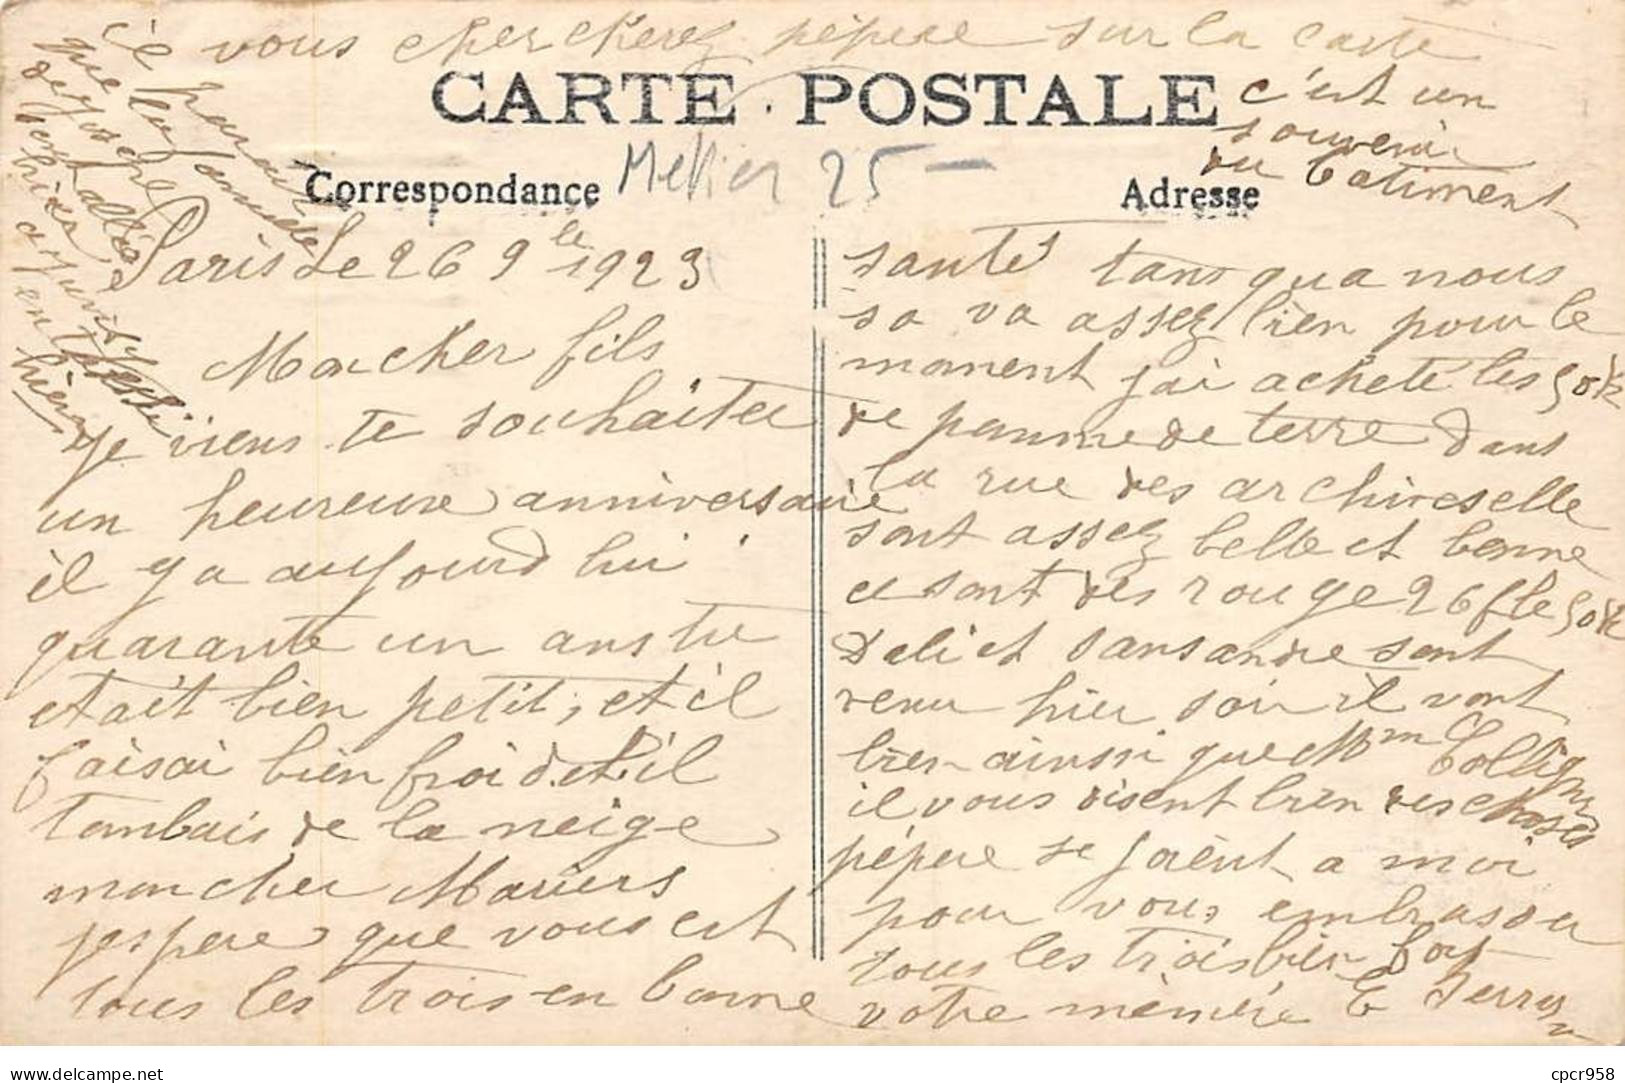 vous chercherez pépère sur la carte
c'est un
souvenir
du batiment
CARTE POSTALE
Mekier 25 -
Correspondance
Adresse
il parait
que la
Paris Le 26 9 le 1923
Mon cher fils
je viens te souhaiter
un heureuse anniversaire
il y a aujourd hui
quarante un ans tu
etait bien petit, et il
faisai bien froid et il
tombais de la neige
mon cher Mariers
jespere que vous est
tous les trois en bonne
santé tans qua nous
sa va assez bien pour le
moment jai acheté les 50 k
de pomme de terre dans
la rue des archives elle
sont assez belle et bonne
ce sont des rouge 26 f le 50 k
Deli et sansandre sont
venu hier soir il vont
bien ainsi que Mm Collign
il vous disent bien des choses
pépere se joient a moi
pour vous embrasser
tous les trois bien fort
votre mémére E Ferron
hier
cpcr958